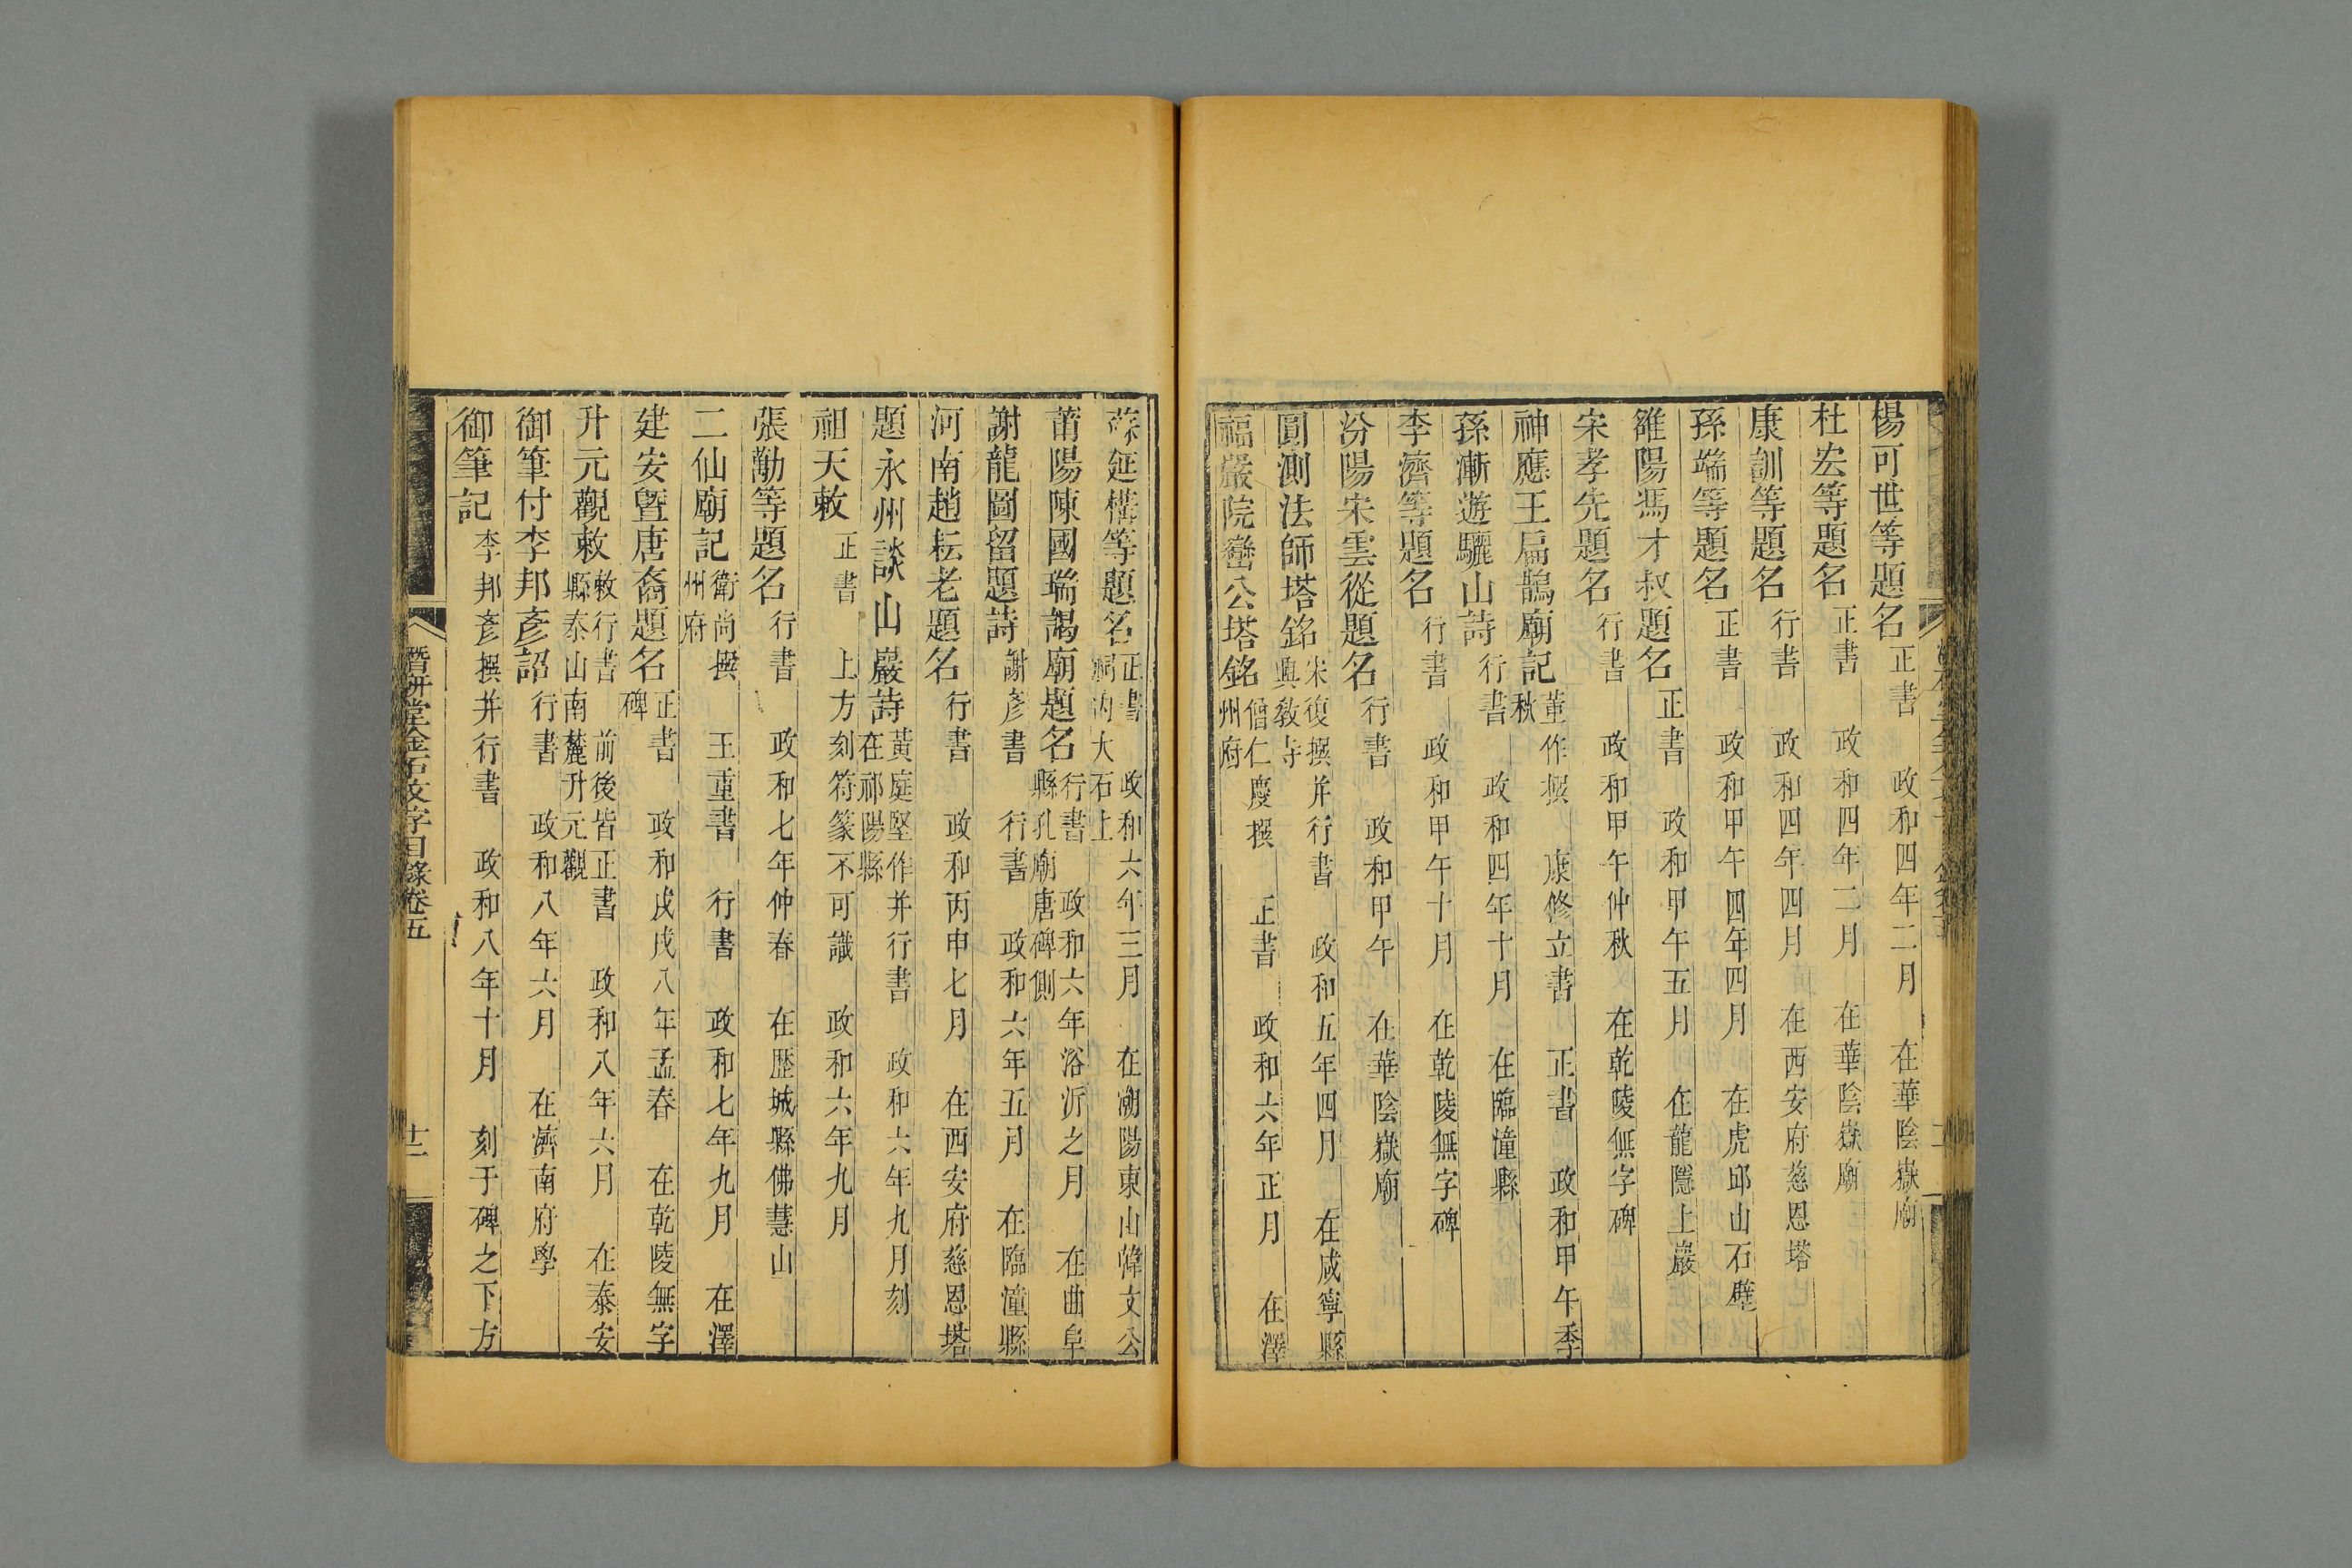 楊可世等題名 正書 政和四年二月 在華陰嶽廟
杜宏等題名 正書 政和四年二月 在華陰嶽廟
康訓等題名 行書 政和四年四月 在西安府慈恩塔
孫端等題名 正書 政和甲午四年四月 在虎邱山石壁
雒陽馮才叔題名 正書 政和甲午五月 在龍隱上巖
宋孝先題名 行書 政和甲午仲秋 在乾陵無字碑
神應王扁鵲廟記 董作撰 康修立書 正書 政和甲午季
秋
孫漸遊驪山詩 行書 政和四年十月 在臨潼縣
李濟等題名 行書 政和甲午十月 在乾陵無字碑
汾陽宋雲從題名 行書 政和甲午 在華陰嶽廟
圓測法師塔銘 宋復撰并行書 政和五年四月 在咸寧縣
興敎寺
福嚴院巒公塔銘 僧仁慶撰 正書 政和六年正月 在澤
州府
蘇延構等題名 正書 政和六年三月 在潮陽東山韓文公
祠內大石上
莆陽陳國瑞謁廟題名 行書 政和六年浴沂之月 在曲阜
縣孔廟唐碑側
謝龍圖留題詩 謝彥書 行書 政和六年五月 在臨潼縣
河南趙耘老題名 行書 政和丙申七月 在西安府慈恩塔
題永州談山巖詩 黃庭堅作并行書 政和六年九月刻
在祁陽縣
祖天敕 正書 上方刻符篆不可識 政和六年九月
張勱等題名 行書 政和七年仲春 在歷城縣佛慧山
二仙廟記 衛尚撰 王重書 行書 政和七年九月 在澤
州府
建安曁唐裔題名 正書 政和戊戌八年孟春 在乾陵無字
碑
升元觀敕 敕行書 前後皆正書 政和八年六月 在泰安
縣泰山南麓升元觀
御筆付李邦彥詔 行書 政和八年六月 在濟南府學
御筆記 李邦彥撰并行書 政和八年十月 刻于碑之下方
潛研堂金石文字目錄卷五
十二